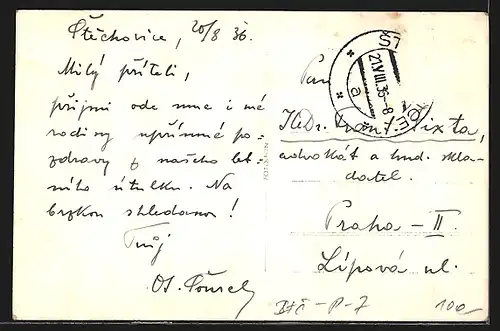 Štěchovice, 20/8 36.
Milý příteli,
přijmi ode mne i mé
rodiny upřímné po-
zdravy z našeho let-
ního útulku. Na
brzkou shledanou!
Tvůj
Ot.
Pan
JUDr. Ivan
advokát a hud. skla-
datel.
Praha - II.
Lípová ul.
ŠT
21.VIII.36-8
a
100-